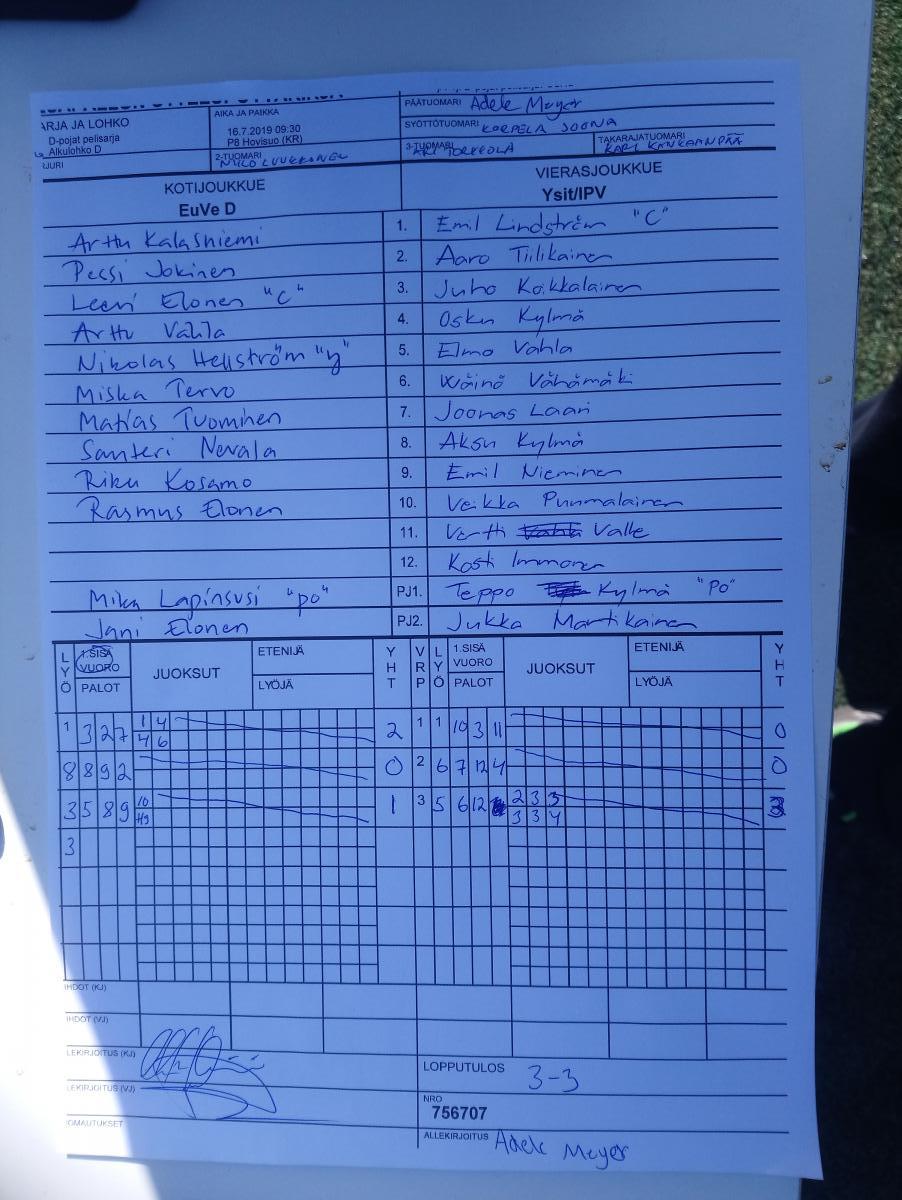 ARJA JA LOHKO
D-pojat pelisarja
Alkulohko D
AIKA JA PAIKKA
16.7.2019 09:30
P8 Hovisuo (KR)
2-TUOMARI
PÄÄTUOMARI Adele Meyer
SYÖTTÖTUOMARI KORPELA JOONA
3-TUOMARI
TAKARAJATUOMARI KARI KANKAANPÄÄ
KOTIJOUKKUE
EuVe D
VIERASJOUKKUE
Ysit/IPV
Arttu Kalasniemi 1. Emil Lindström "C"
Pessi Jokinen 2. Aaro Tiilikainen
Leevi Elonen "C" 3. Juho Koikkalainen
Arttu Vahla 4. Osku Kylmä
Nikolas Hellström "y" 5. Elmo Vahla
Miska Tervo 6. Wäinö Vähämäki
Matias Tuominen 7. Joonas Laari
Santeri Nevala 8. Aksu Kylmä
Riku Kosamo 9. Emil Nieminen
Rasmus Elonen 10. Veikka Puumalainen
11. Vertti Valle
12. Kosti Immonen
Mika Lapinsusi "po" PJ1. Teppo Kylmä "Po"
Jani Elonen PJ2. Jukka Martikainen
LYÖ 1.SISÄ VUORO PALOT JUOKSUT ETENIJÄ LYÖJÄ YHT VRP LYÖ 1.SISÄ VUORO PALOT JUOKSUT ETENIJÄ LYÖJÄ YHT
1 3 2 7 1 4 2 1 1 10 3 11 0
4 6
8 8 9 2 0 2 6 7 12 4 0
3 5 8 9 10 1 3 5 6 12 2 3 3 3
3 3 4
3
HDOT (KJ)
HDOT (VJ)
LEKIRJOITUS (KJ)
LEKIRJOITUS (VJ)
LOPPUTULOS 3-3
NRO
756707
OMAUTUKSET
ALLEKIRJOITUS Adele Meyer